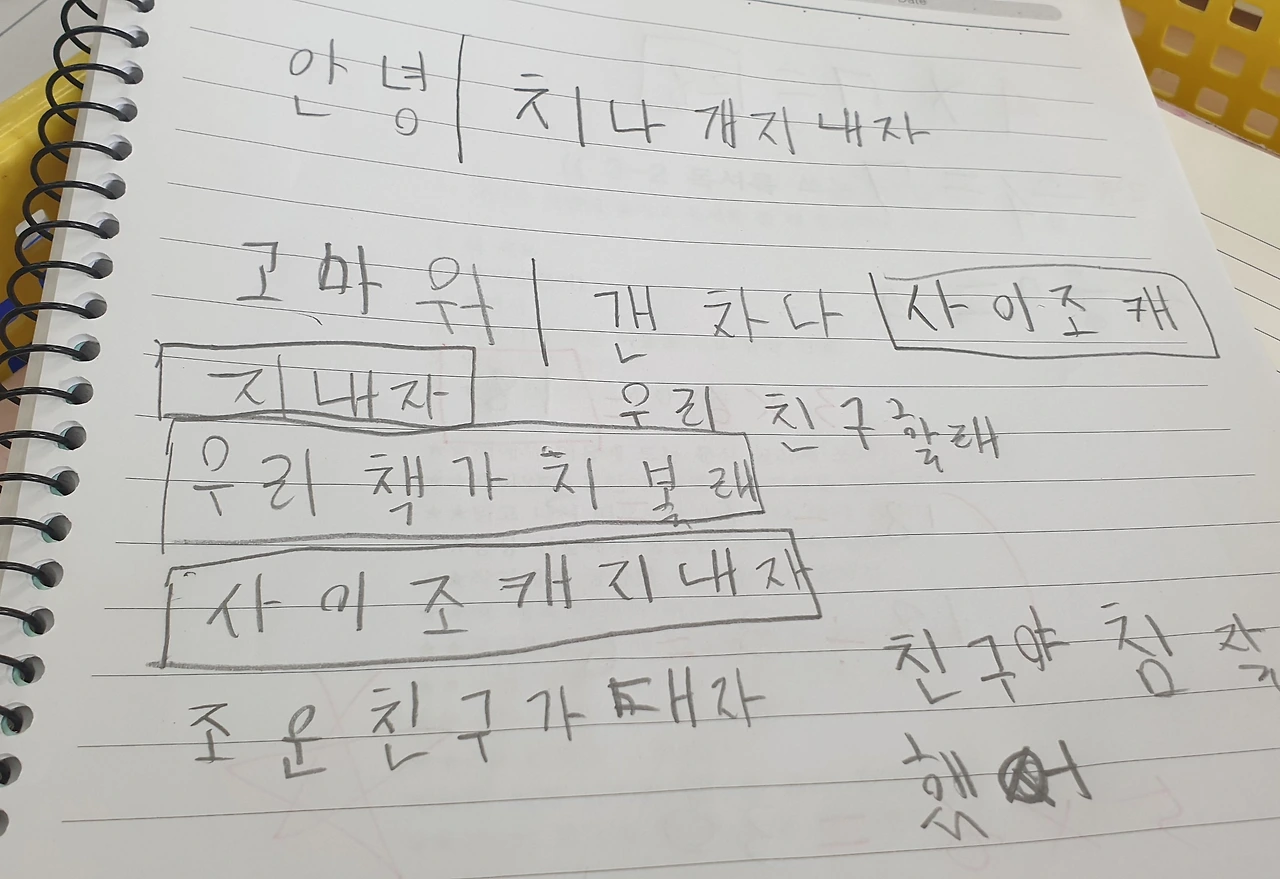 안녕 치나개지내자
고마워 갠차나 사이조캐
지내자 우리 친구할래
우리 책가치 볼래
사이조캐지내자
조은친구가돼자 친구야 침 잘
했어